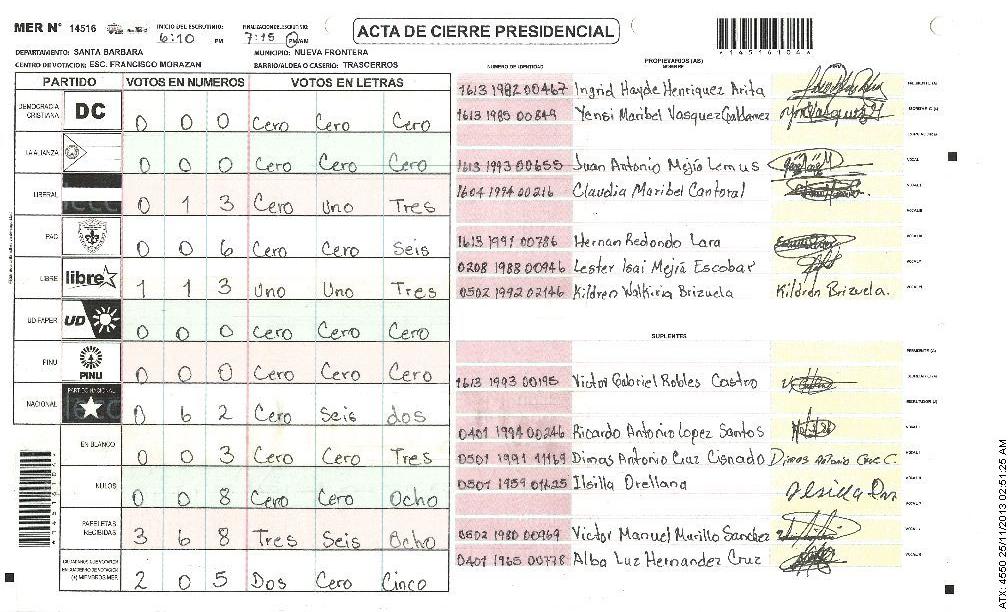 MER N° 14516
INICIO DEL ESCRUTINIO: 6:10 PM
FINALIZACION DE ESCRUTINIO: 7:15 PM/AM
ACTA DE CIERRE PRESIDENCIAL
14516104
DEPARTAMENTO: SANTA BARBARA
MUNICIPIO: NUEVA FRONTERA
CENTRO DE VOTACION: ESC. FRANCISCO MORAZAN
BARRIO/ALDEA O CASERIO: TRASCERROS
PARTIDO VOTOS EN NUMEROS VOTOS EN LETRAS
DEMOCRACIA CRISTIANA DC 0 0 0 Cero Cero Cero
LA ALIANZA 0 0 0 Cero Cero Cero
LIBERAL 0 1 3 Cero Uno Tres
PAC 0 0 6 Cero Cero Seis
LIBRE libre 1 1 3 Uno Uno Tres
UD FAPER UD 0 0 0 Cero Cero Cero
PINU PINU 0 0 0 Cero Cero Cero
NACIONAL PARTIDO NACIONAL 0 6 2 Cero Seis dos
EN BLANCO 0 0 3 Cero Cero Tres
NULOS 0 0 8 Cero Cero Ocho
PAPELETAS RECIBIDAS 3 6 8 Tres Seis Ocho
(+) MIEMBROS MER 2 0 5 Dos Cero Cinco
PROPIETARIOS (AS)
NUMERO DE IDENTIDAD NOMBRE
1613 1982 00467 Ingrid Hayde Henriquez Arita
1613 1985 00849 Yensi Maribel Vasquez Galdamez
1613 1993 00655 Juan Antonio Mejía Lemus
1604 1994 00216 Claudia Maribel Cantoral
1613 1991 00786 Hernan Redondo Lara
0208 1988 00946 Lester Isai Mejía Escobar
0502 1992 02146 Kildren Walkiria Brizuela Kildren Brizuela.
SUPLENTES
1613 1993 00195 Victor Gabriel Robles Castro
0401 1994 00246 Ricardo Antonio Lopez Santos
0501 1991 11169 Dimas Antonio Cruz Cisnado Dimas Antonio Cruz C.
0501 1959 01625 Ilsilla Orellana
0502 1980 00969 Victor Manuel Murillo Sanchez
0401 1965 00778 Alba Luz Hernandez Cruz
ATX: 4550 25/11/2013 02:51:25 AM